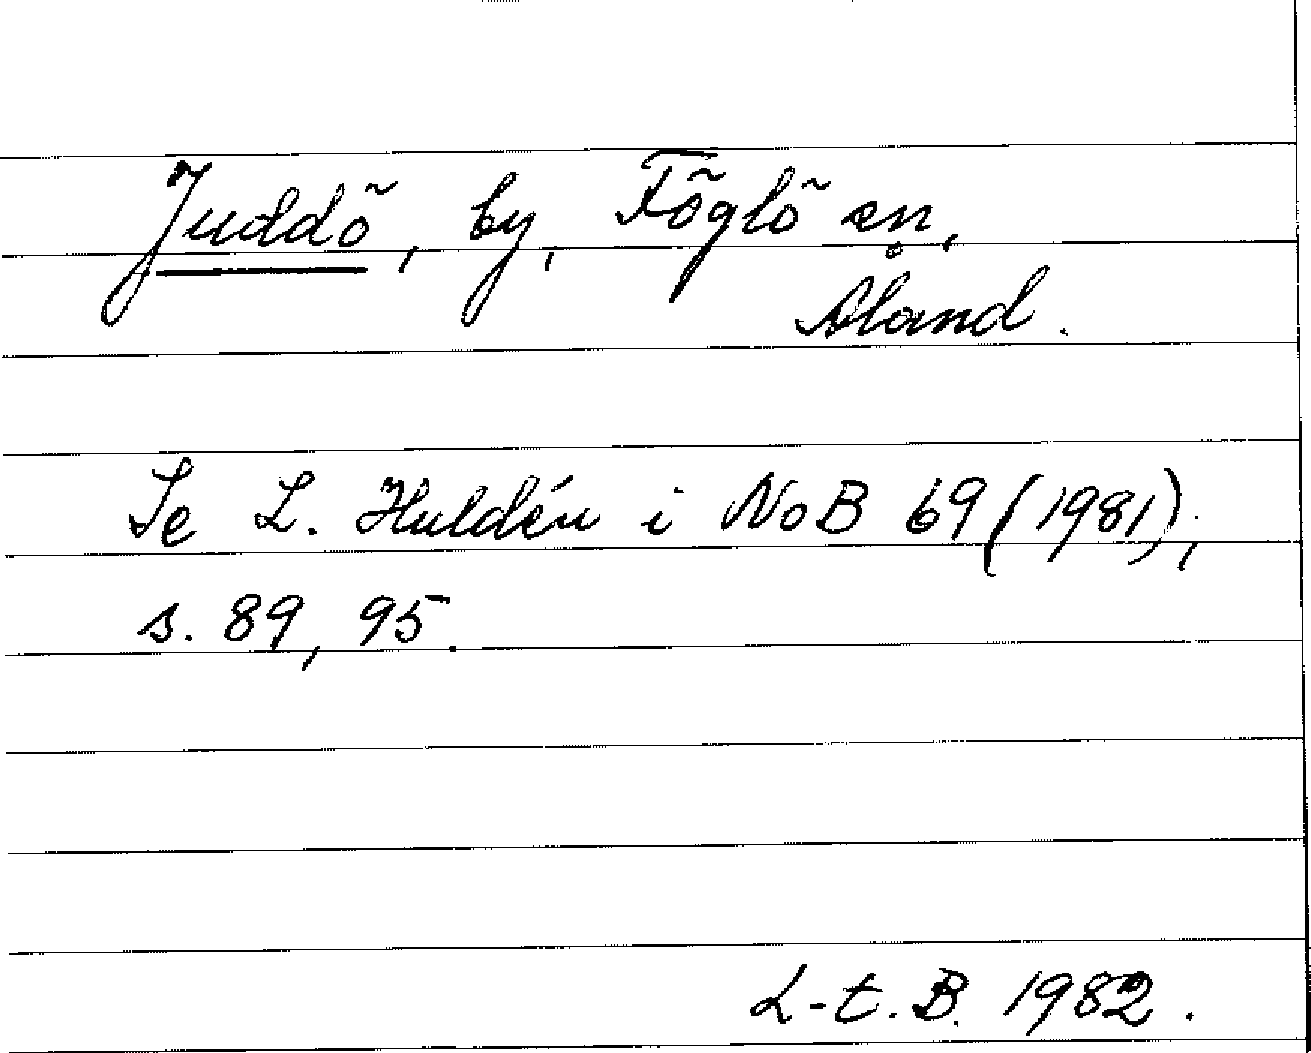 Juddö, by, Föglö sn,
Åland.
Se L. Huldén i NoB 69 (1981),
s. 89, 95.
L-t. B. 1982.